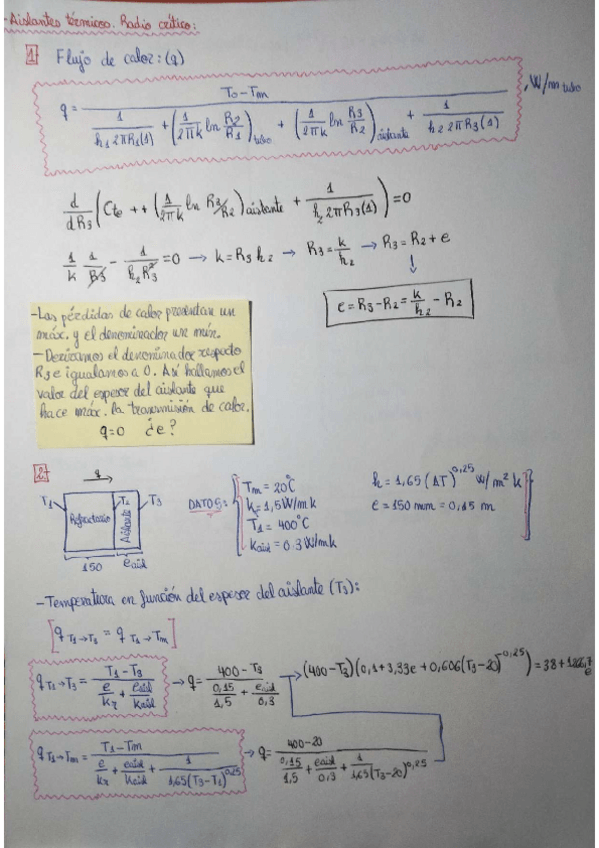 -Aislantes térmicos. Radio crítico:
1 Flujo de calor: (q)
q = (T0 - Tm) / (1/(h1 2πR1(1)) + (1/2πk ln R2/R1)tubo + (1/2πk ln R3/R2)aislante + 1/(h2 2πR3(1))) , W/m tubo
d/dR3 (Cte ++ (1/2πk ln R3/R2) aislante + 1/(h2 2πR3(1))) = 0
1/k 1/R3 - 1/(h2R3²) = 0 → k = R3 h2 → R3 = k/h2 → R3 = R2 + e
↓
e = R3 - R2 = k/h2 - R2
-Las pérdidas de calor presentan un
máx. y el denominador un mín.
-Derivamos el denominador respecto
R3 e igualamos a 0. Así hallamos el
valor del espesor del aislante que
hace máx. la transmisión de calor.
q=0 ¿e?
2
q
T1 Refractario T2 Aislante T3
150 eaisl
DATOS:
Tm = 20°C
k = 1,5W/mk
T1 = 400°C
Kaisl = 0.3W/mk
h = 1,65 (ΔT)^0,25 W/m² k
e = 150 mm = 0,15 m
-Temperatura en función del espesor del aislante (T3):
[q T1→T3 = q T1→Tm]
q T1→T3 = (T1 - T3) / (e/kr + eaisl/kaisl) → q = (400 - T3) / (0,15/1,5 + eaisl/0,3) → (400-T3)(0,1+3,33e+0,606(T3-20)^-0,25) = 38+1266,7e
q T1→Tm = (T1 - Tm) / (e/kr + eaisl/kaisl + 1/(1,65(T3-T1)^0,25)) → q = (400-20) / (0,15/1,5 + eaisl/0,3 + 1/(1,65(T3-20)^0,25))